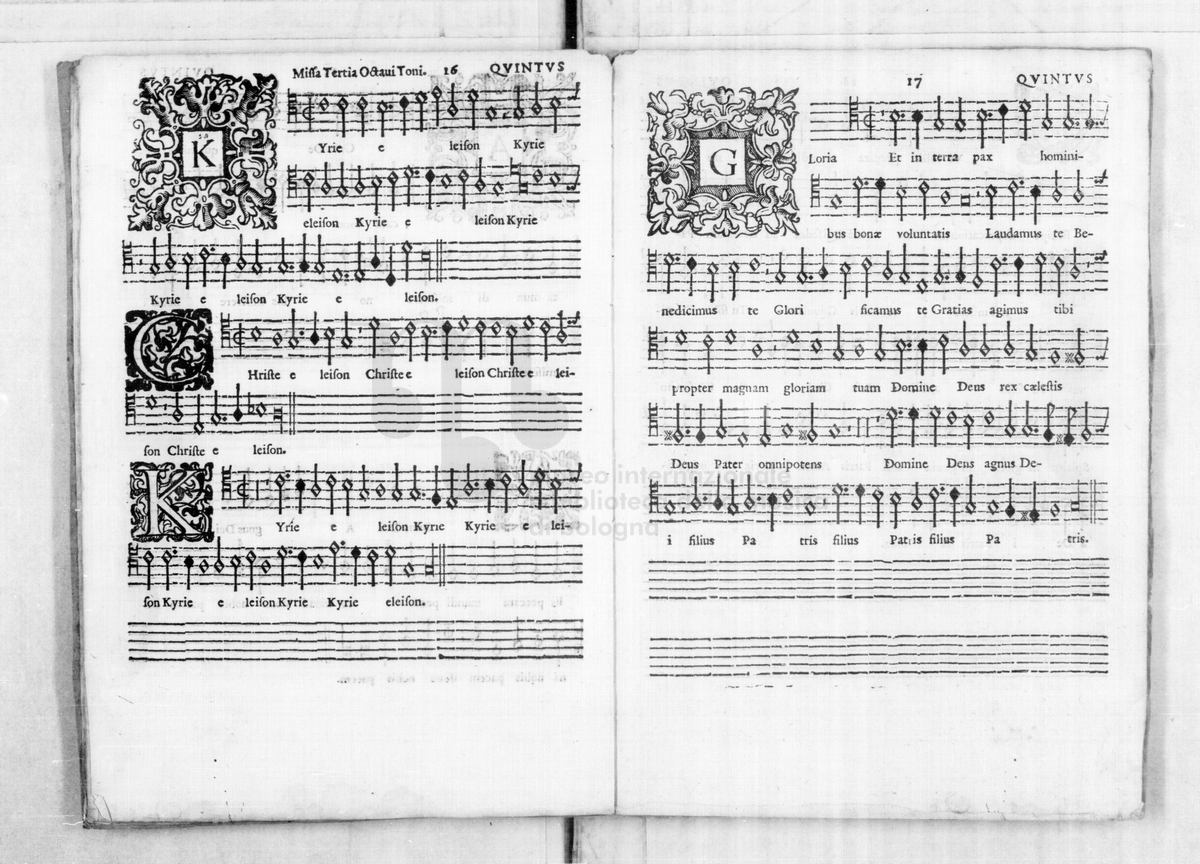 Missa Tertia Octaui Toni. 16 QVINTVS
K
Yrie e leison Kyrie
eleison Kyrie e leison Kyrie
Kyrie e leison Kyrie e leison.
C
Hriste e leison Christe e leison Christe e lei-
son Christe e leison.
K
Yrie e leison Kyrie Kyrie e lei-
son Kyrie e leison Kyrie Kyrie eleison.
17 QVINTVS
G
Loria Et in terra pax homini-
bus bonæ voluntatis Laudamus te Be-
nedicimus te Glori ficamus te Gratias agimus tibi
propter magnam gloriam tuam Domine Deus rex cælestis
Deus Pater omnipotens Domine Deus agnus De-
i filius Pa tris filius Patris filius Pa tris.
museo internazionale
e biblioteca della musica
di bologna